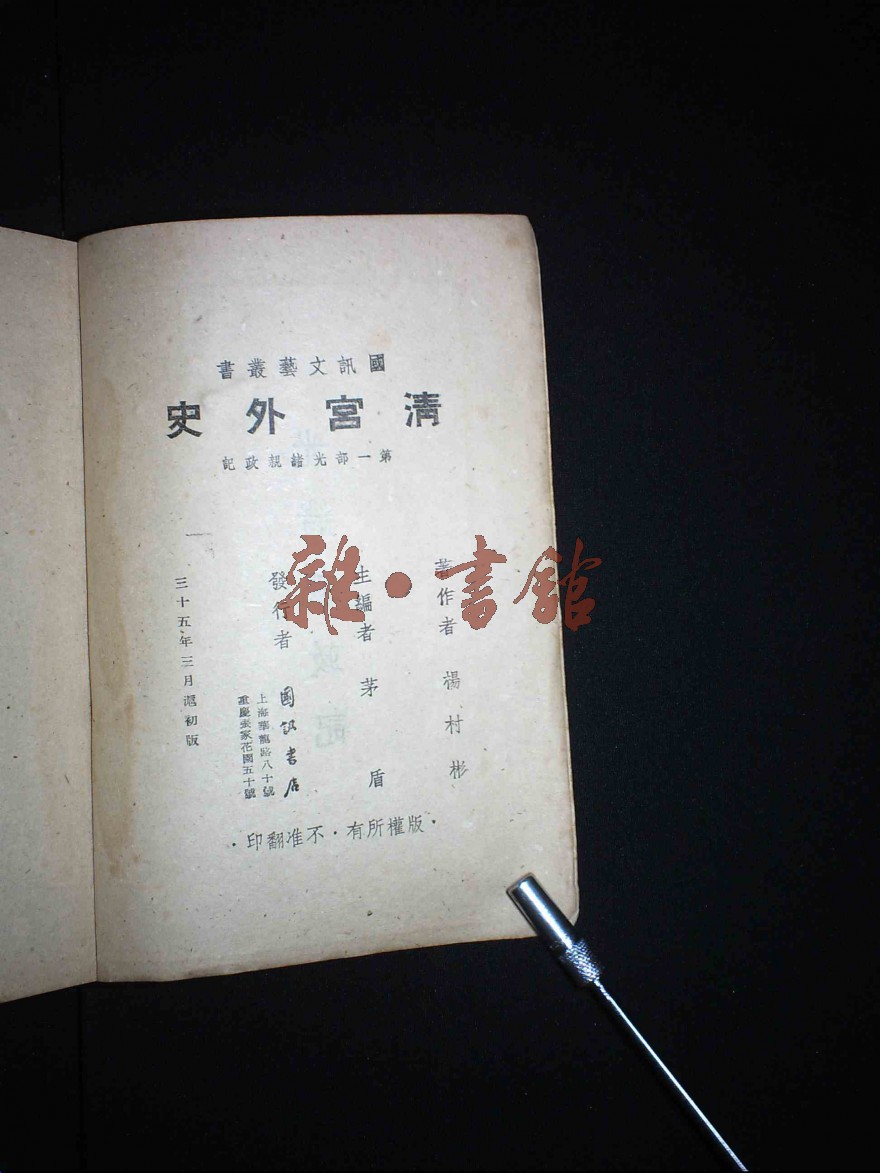 國訊文藝叢書
清宮外史
第一部光緒親政記
著作者 楊村彬
主編者 茅盾
發行者 國訊書店
上海華龍路八十號
重慶張家花園五十號
三十五年三月滬初版
·版權所有·不准翻印·
雜·書館